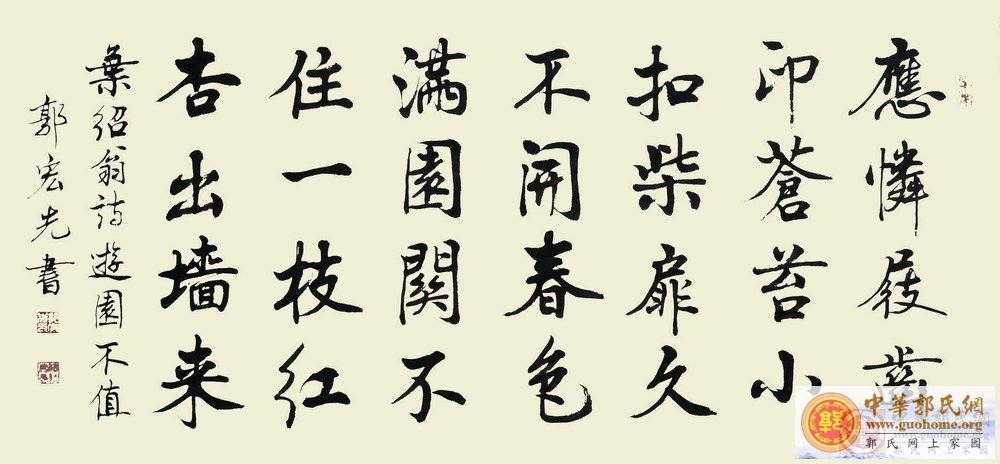 應憐屐齒
印蒼苔小
扣柴扉久
不開春色
滿園関不
住一枝红
杏出墙来
葉紹翁诗遊園不值
郭宏先書
中華郭氏網
www.guohome.org
郭氏网上家园